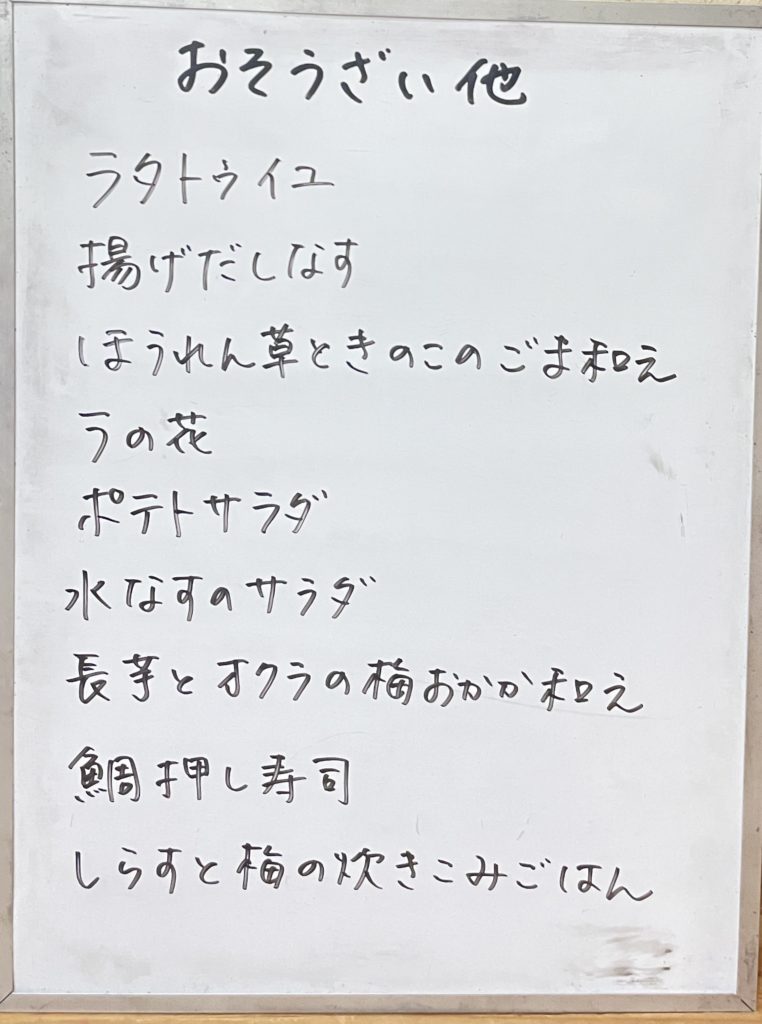 おそうざい 他
ラタトゥイユ
揚げだしなす
ほうれん草ときのこのごま和え
うの花
ポテトサラダ
水なすのサラダ
長芋とオクラの梅おかか和え
鯛押し寿司
しらすと梅の炊きこみごはん